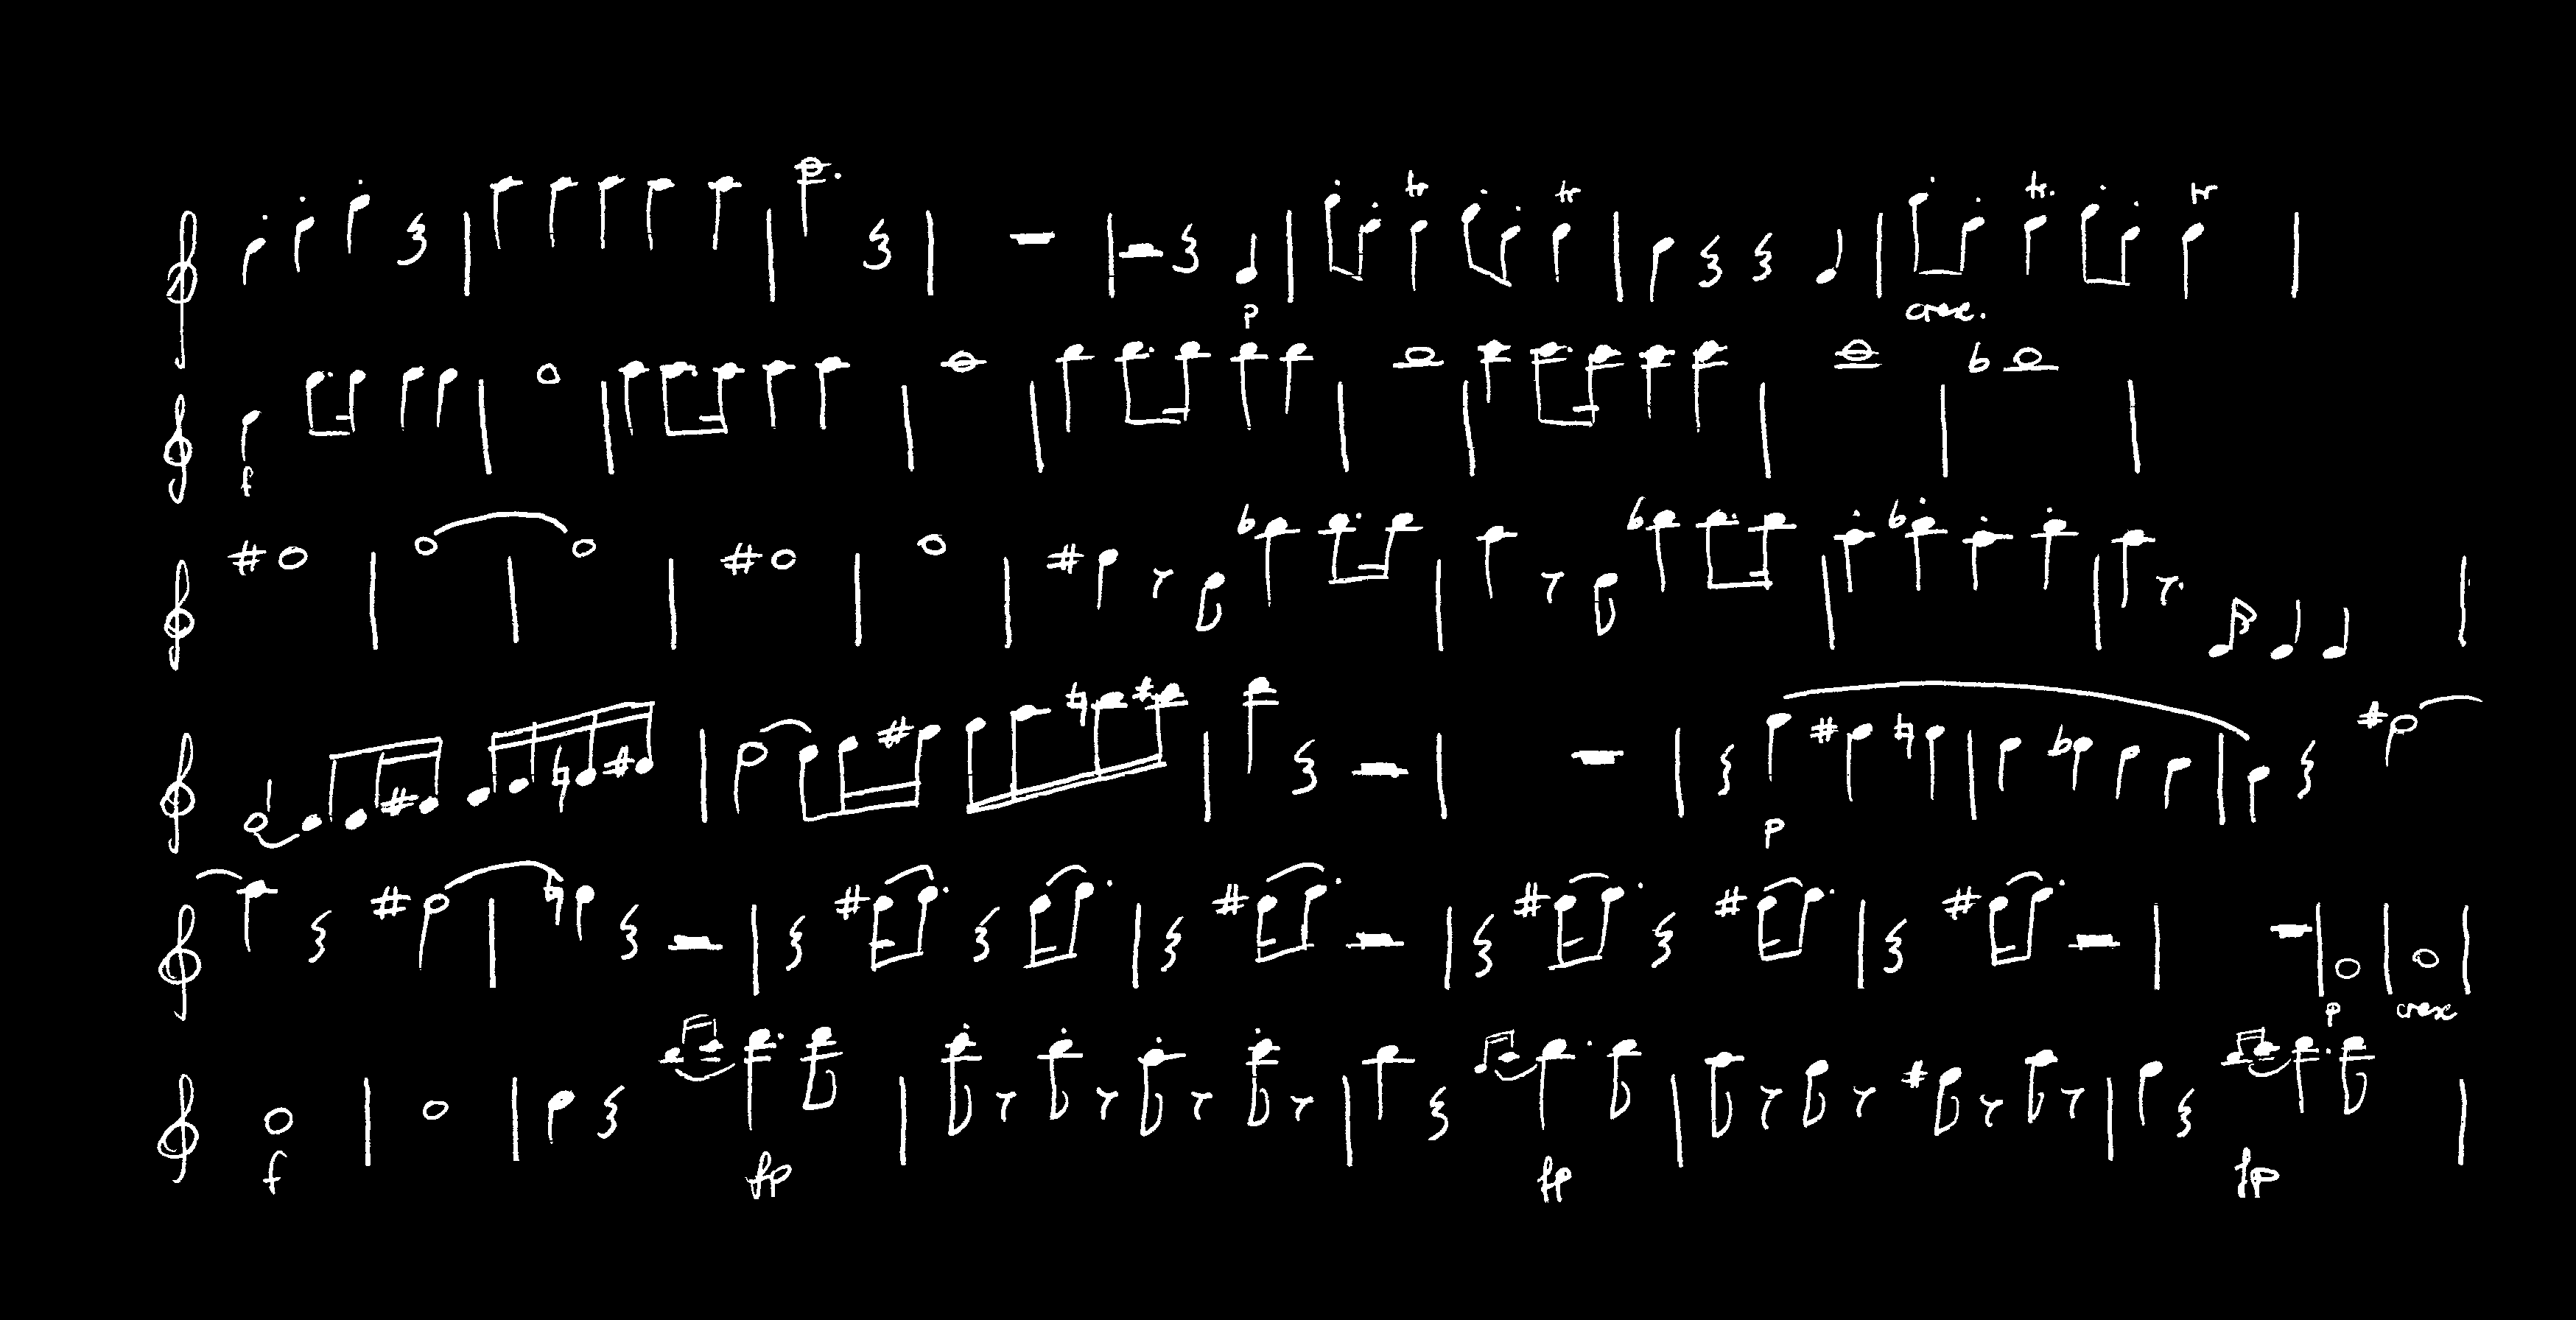 tr tr tr. tr
p cresc.
f
p
p cresc
f fp fp fp